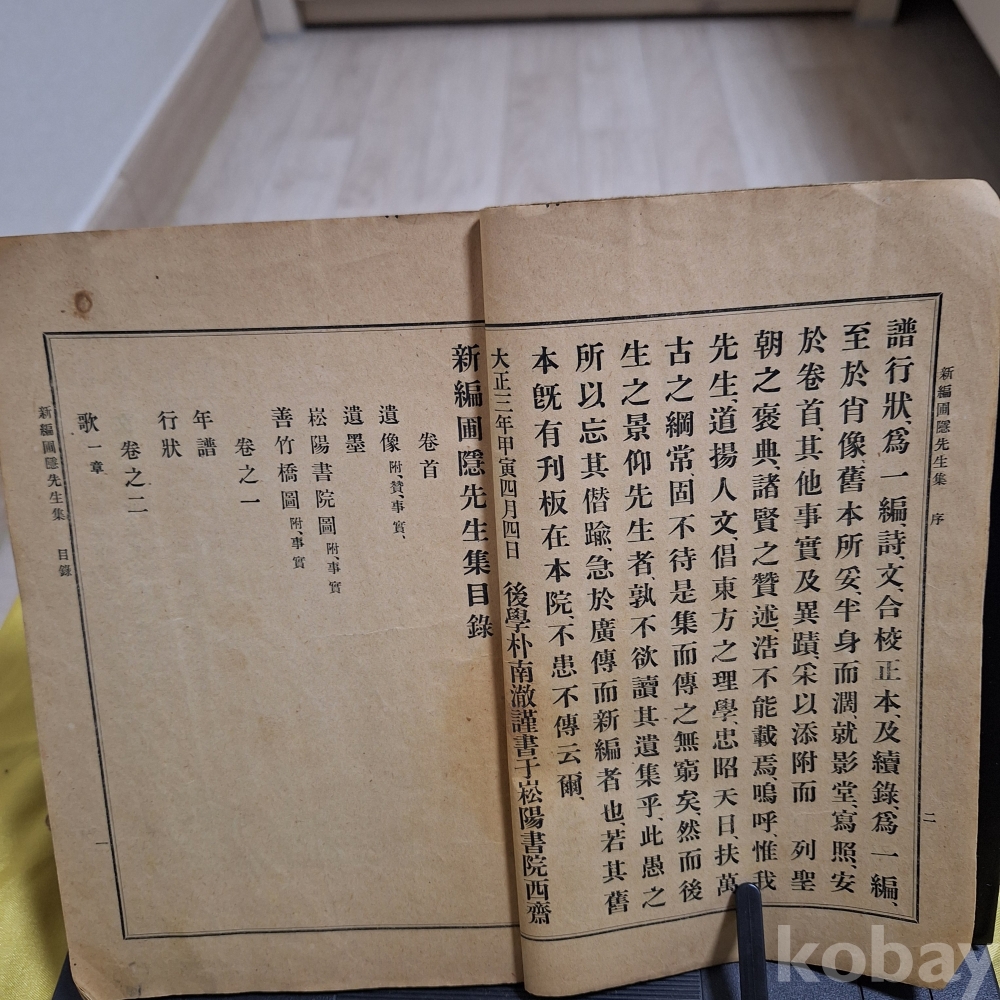 新編圃隱先生集 序 二
譜行狀、爲一編、詩、文、合校正本、及續錄、爲一編、
至於肖像、舊本所妥、半身而濶、就影堂、寫照、安
於卷首、其他事實及異蹟、采以添附而 列聖
朝之褒典、諸賢之贊述浩不能載焉、嗚呼、惟我
先生、道揚人文、倡東方之理學、忠昭天日、扶萬
古之綱常、固不待是集而傳之無窮矣然而後
生之景仰先生者、孰不欲讀其遺集乎、此愚之
所以忘其僭踰、急於廣傳而新編者也、若其舊
本旣有刋板在本院、不患不傳云爾、
大正三年甲寅四月四日 後學朴南澈謹書于崧陽書院西齋
新編圃隱先生集目錄
卷首
遺像 附贊、事實、
遺墨
崧陽書院圖 附、事實
善竹橋圖 附、事實
卷之一
年譜
行狀
卷之二
歌 一章
新編圃隱先生集 目錄 一
kobay